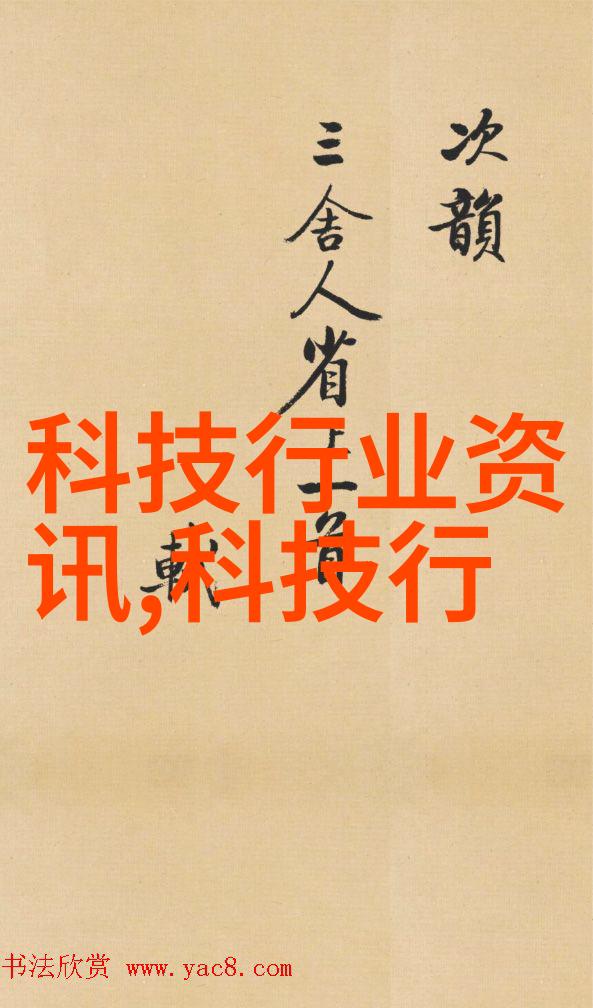 次韻
三舍人省上一首
軾
科技行业资
讯,科技行
书法欣赏 www.yac8.com